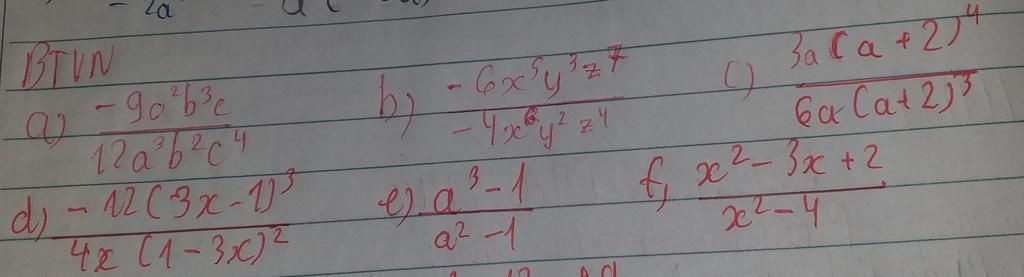 - 2a
BTVN
a) \frac{-9a^2b^3c}{12a^3b^2c^4} b) \frac{-6x^5y^3z^7}{-4x^6y^2z^4} c) \frac{3a(a+2)^4}{6a(a+2)^3}
d) \frac{-12(3x-1)^3}{4x(1-3x)^2} e) \frac{a^3-1}{a^2-1} f, \frac{x^2-3x+2}{x^2-4}